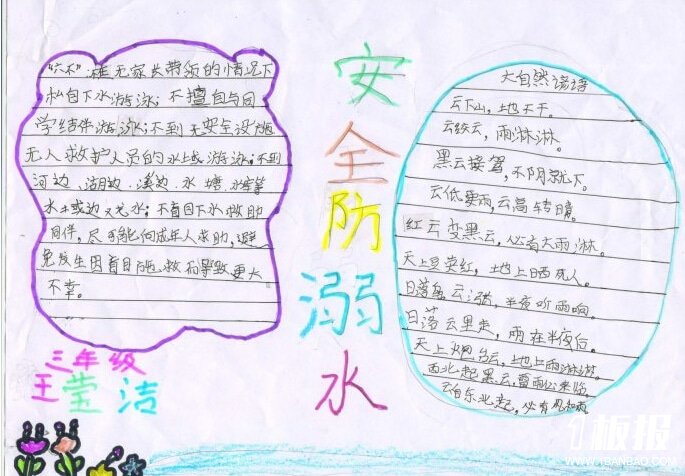 "六不":在无家长带领的情况下
私自下水游泳;不擅自与同
学结伴游泳;不到无安全设施
无人救护人员的水域游泳;不到
河边、湖边、溪边、水塘、水库等
水土或边又光水;不盲目下水救助
同伴,尽可能向成年人求助,避
免发生因盲目施救而导致更大
不幸。
三年级
王莹洁
安全防溺水
大自然谚语
云下山,地不干。
云绞云,雨淋淋。
黑云接驾,不阴就下。
云低要雨,云高转晴。
红云变黑云,必有大雨淋。
天上豆荚红,地上晒死人。
日落云涨,半夜听雨响。
日落云里走,雨在半夜后。
天上炮台云,地上雨淋淋。
西北起黑云,雷雨必来临。
云自东北起,必有风和雨
板报
WWW.1BANBAO.COM